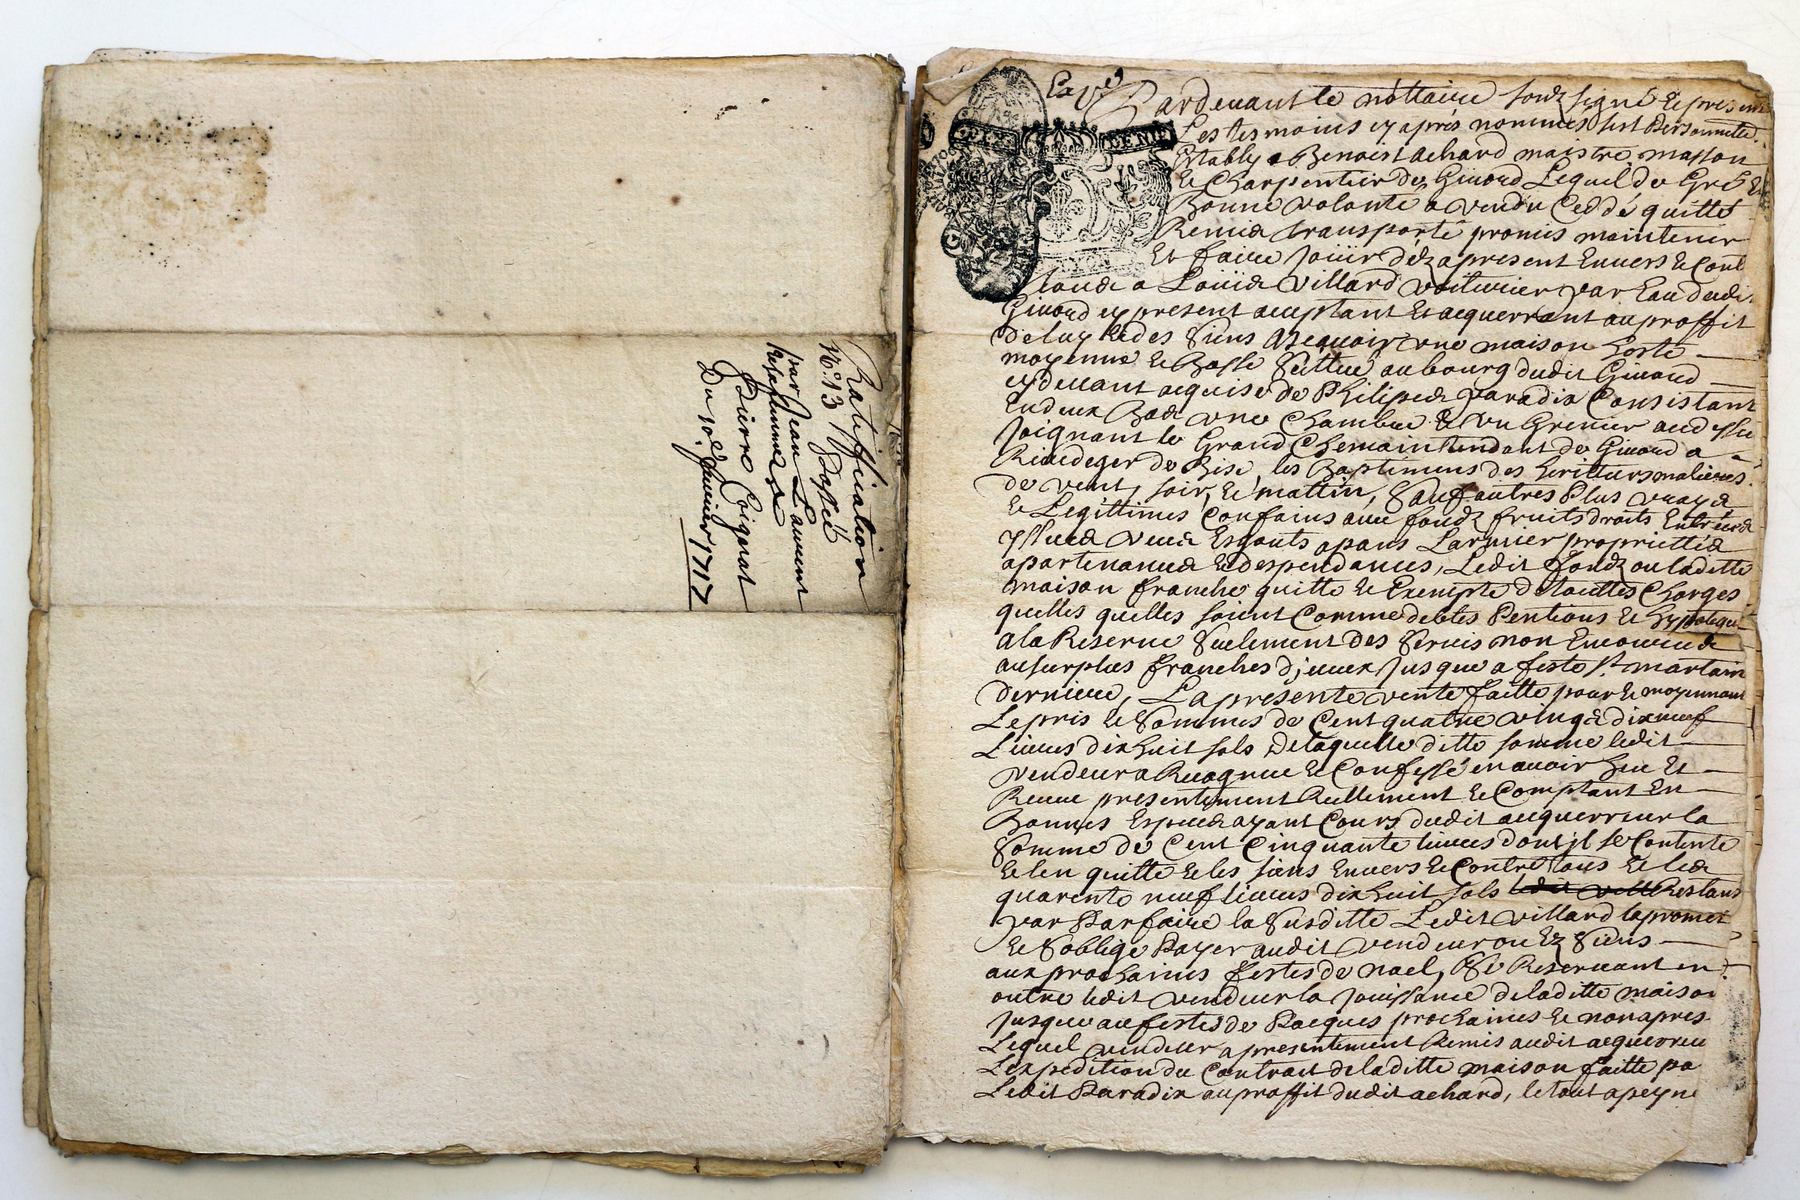 Ratiffication
N.o 13 Passée
par Jean Laurent
Pierre Coignat
Du 10.e Janvier 1717
Exp.é
Pardeuant le nottaire soubz signé & presents
Les tesmoins cy aprés nommés fut personnellem.
Estably Benoist achard maistre masson
& Charpentier de Giuord Lequel de Gré &
Bonne volonte a vendu Ceddé quitté
Remis transporté promis maintenir
Et faire jouir déz apresent Enuers & Cont
tous a Loüis Villard voiturier par Eau dudit
Giuord cy present aceptant Et acquerrant au proffit
de luy & des siens Asçauoir une maison haste
moyenne & Basse scittué au bourg dudit Giuord
cy deuant acquise de Philipes Paradis Consistant
En deux Bas une Chambre & un Grenier au dessu
joignant le Grand Chemain tendant de Giuord a
Riuedeger de Bise, les Baptimens des heritiers
de vent, soir, & mattin, sauf autres Plus vrays
& Legittimes Confains auec fondz fruits droits Entrées
yssues veues Esgouts apans Larmier propriettés
apartenances & despendances, Ledit fondz ou laditte
maison franche quitte & Exempte de touttes Charges
quelles quelles soient Comme debtes Pentions & hypoteque
a la Reserue seulement des seruis non Enoncés
au surplus franches d'iceux jusque a feste St. martain
derniere, La presente vente faitte pour & moyennant
Le pris & sommes de Cent quatre vingt dix neuf
Liures dix huit sols De laquelle ditte somme ledit
vendeur a Recognue & Confessé en auoir heu Et
Receue presentement Reellement & Comptant En
Bonnes Especes ayant Cours dudit acquerreur la
somme de Cent Cinquante liures dont il se Contente
& len quitte & les siens Enuers & Contre tous & les
quarente neuf liures dix huit sols Restans
par Parfaire la susditte Ledit Villard la promet
& soblige Payer audit vendeur ou Ez siens
aux prochaines festes de nael, Se Reseruant en
outre ledit vendeur la jouissance de laditte maison
jusque au festes de Pacques prochaines & non apres
Lequel vendeur a presentement Remis audit acquereur
L'expedition du Contrait de laditte maison faitte pa
Ledit Paradis au proffit dudit achard, le tout a peyne